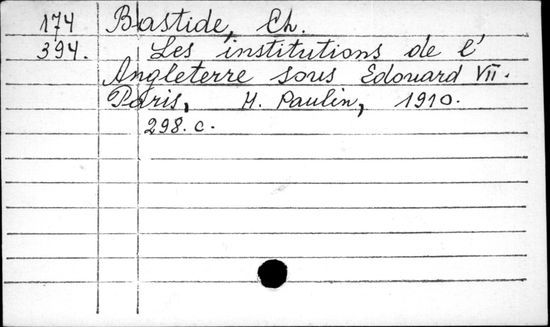 174 Bastide, Ch.
394. Les institutions de l'
Angleterre sous Edouard VII.
Paris, H. Paulin, 1910.
298. c.